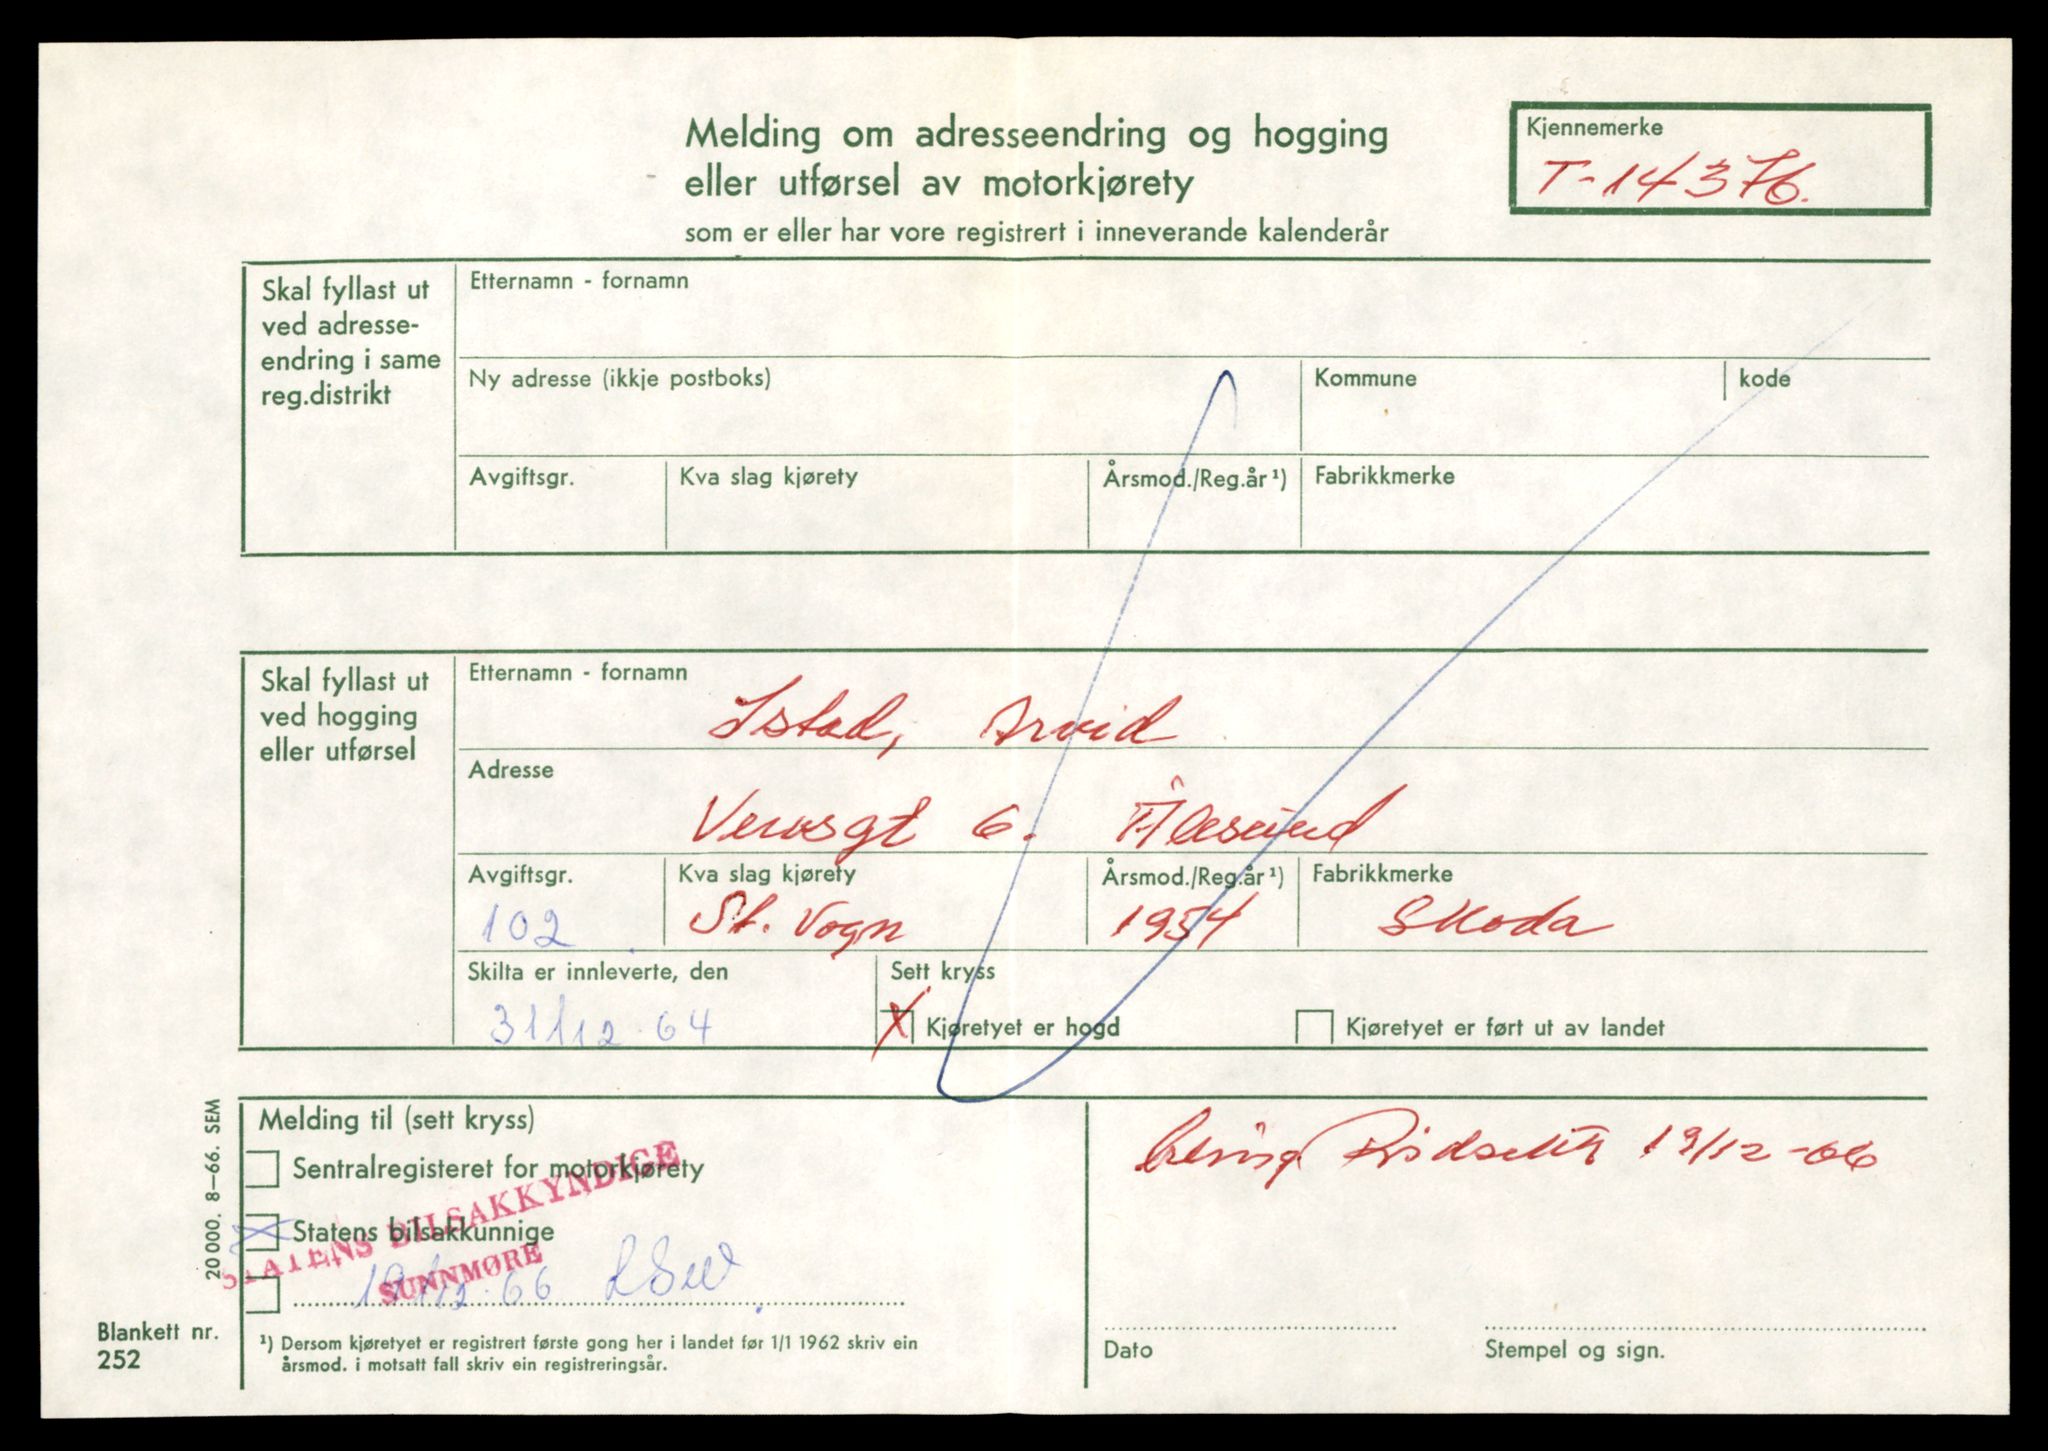 Melding om adresseendring og hogging
eller utførsel av motorkjørety
som er eller har vore registrert i inneverande kalenderår
Kjennemerke
T-14376.
Skal fyllast ut
ved adresse-
endring i same
reg.distrikt
Etternamn - fornamn
Ny adresse (ikkje postboks)
Kommune
kode
Avgiftsgr.
Kva slag kjørety
Årsmod./Reg.år ¹)
Fabrikkmerke
Skal fyllast ut
ved hogging
eller utførsel
Etternamn - fornamn
Istad, Arvid
Adresse
6. Ålesund
Avgiftsgr.
102
Kva slag kjørety
St. Vogn
Årsmod./Reg.år ¹)
1954
Fabrikkmerke
Skoda
Skilta er innleverte, den
31/12.64
Sett kryss
X Kjøretyet er hogd
Kjøretyet er ført ut av landet
Melding til (sett kryss)
Sentralregisteret for motorkjørety
Statens bilsakkunnige
STATENS BILSAKKYNDIGE
SUNNMØRE
19/12.66
19/12-66
Dato
Stempel og sign.
¹) Dersom kjøretyet er registrert første gong her i landet før 1/1 1962 skriv ein
årsmod. i motsatt fall skriv ein registreringsår.
20 000. 8-66. SEM
Blankett nr.
252